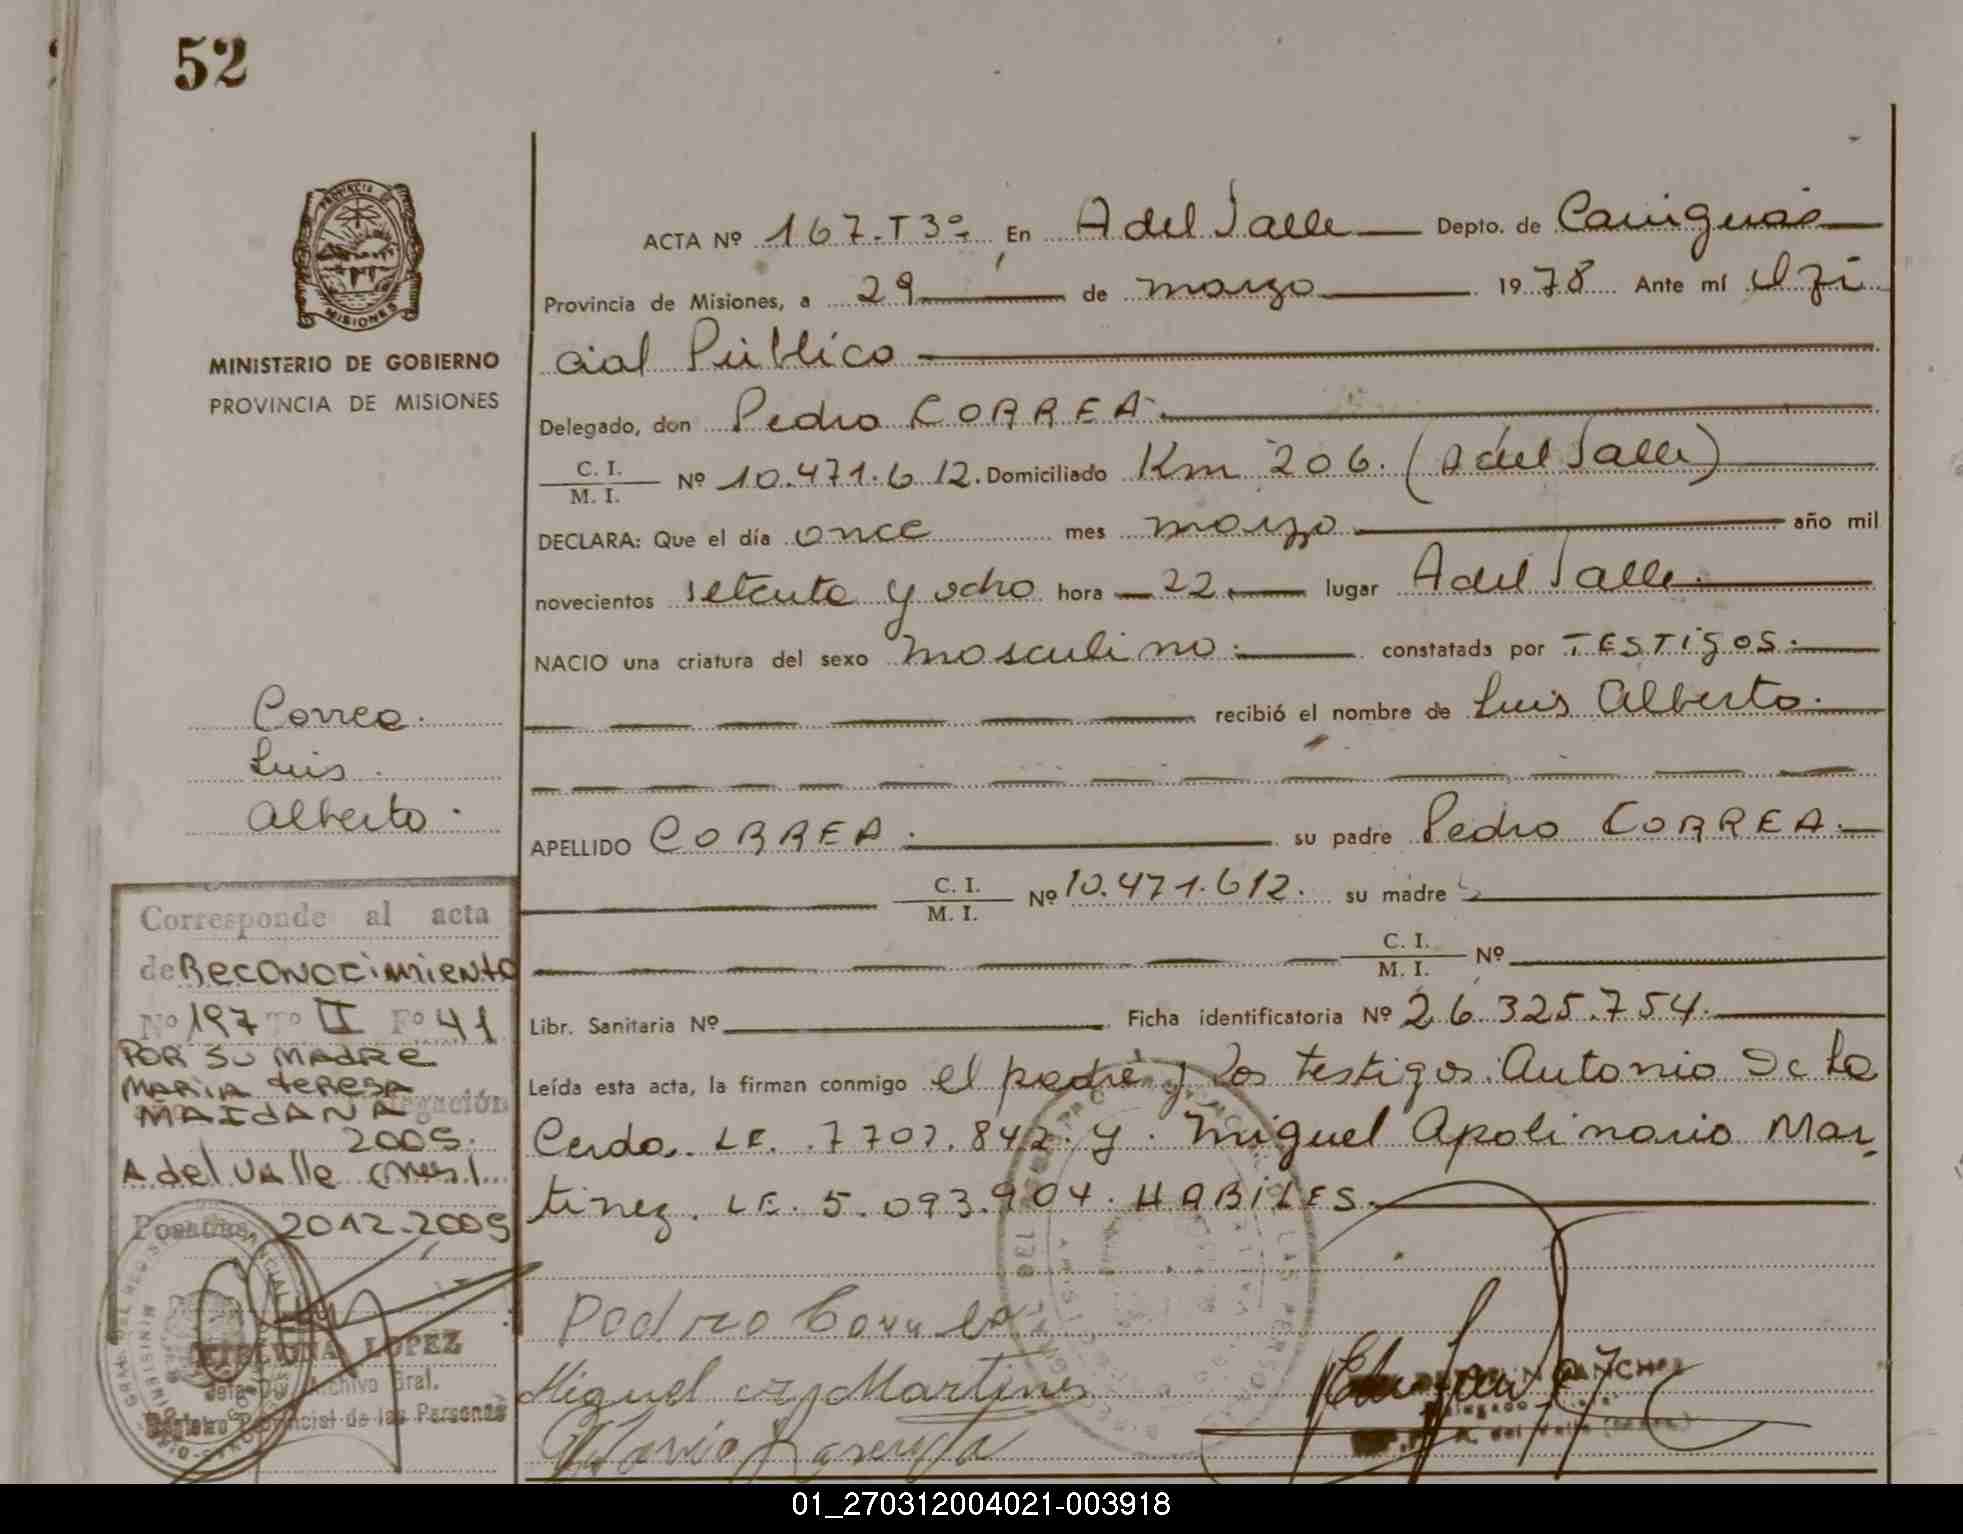 52
PROVINCIA DE
MISIONES
MINISTERIO DE GOBIERNO
PROVINCIA DE MISIONES
ACTA Nº 167.T3º. En A del Valle Depto. de Cainguás
Provincia de Misiones, a 29 de marzo 1978 Ante mí Ofi
cial Público
Delegado, don Pedro CORREA.
C. I.
M. I. Nº 10.471.612. Domiciliado Km 206. (A del Valle)
DECLARA: Que el día once mes marzo año mil
novecientos setenta y ocho hora 22 lugar A del Valle.
NACIO una criatura del sexo masculino. constatada por TESTigos.
recibió el nombre de Luis Alberto.
APELLIDO CORREA. su padre Pedro CORREA.
C. I.
M. I. Nº 10.471.612. su madre
C. I.
M. I. Nº
Libr. Sanitaria Nº Ficha identificatoria Nº 26.325.754.
Leída esta acta, la firman conmigo el padre y los testigos: Antonio De La
Cerda. LE. 7.707.842. y. Miguel Apolinario Mar
tinez. LE. 5.093.904. HABILES.
Miguel Martines
Correa.
Luis.
Alberto.
Corresponde al acta
de Reconocimiento
Nº 197 Tº II Fº 41
POR SU MADRE
MARIA TERESA
MAIDANA
2005.
A del VAlle (Mnes).
Posadas, 2012.2005
LOPEZ
Jefe Dpt. Archivo Gral.
Registro Provincial de las Personas
01_270312004021-003918